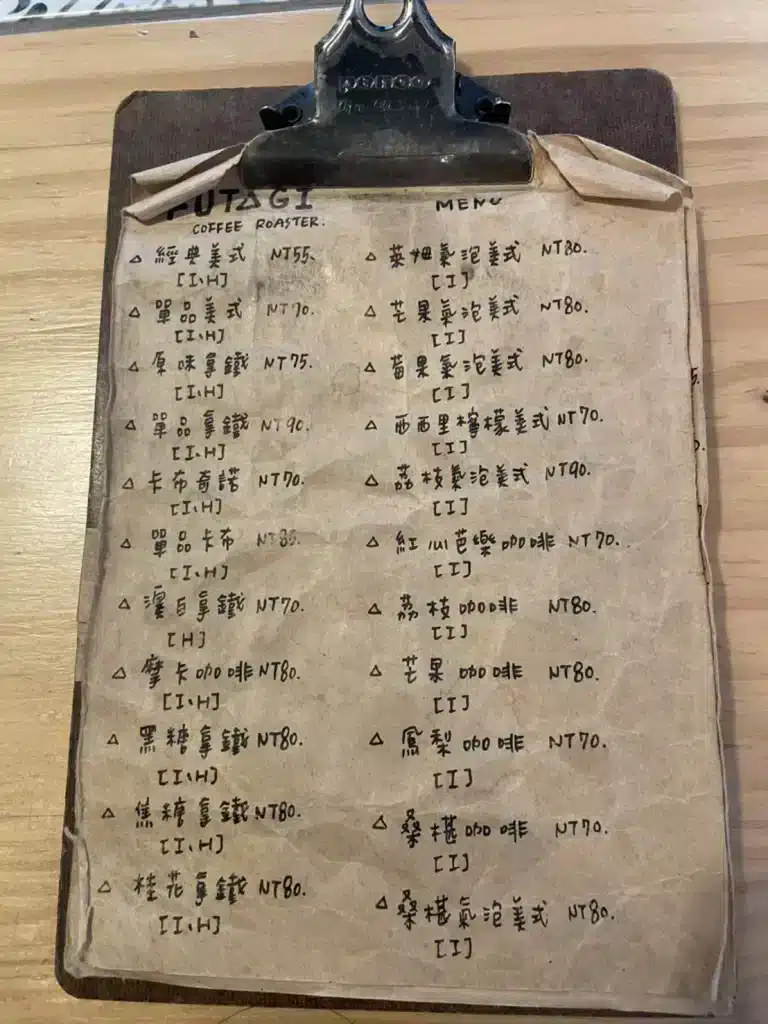 FUTAGI
COFFEE ROASTER.
MENU
△ 經典美式 NT55.
[I、H]
△ 單品美式 NT70.
[I、H]
△ 原味拿鐵 NT75.
[I、H]
△ 單品拿鐵 NT90.
[I、H]
△ 卡布奇諾 NT70.
[I、H]
△ 單品卡布
[I、H]
△ 澳白拿鐵 NT70.
[H]
△ 摩卡咖啡 NT80.
[I、H]
△ 黑糖拿鐵 NT80.
[I、H]
△ 焦糖拿鐵 NT80.
[I、H]
△ 桂花拿鐵 NT80.
[I、H]
△ 萊姆氣泡美式 NT80.
[I]
△ 芒果氣泡美式 NT80.
[I]
△ 莓果氣泡美式 NT80.
[I]
△ 西西里檸檬美式 NT70.
[I]
△ 荔枝氣泡美式 NT90.
[I]
△ 紅心芭樂咖啡 NT70.
[I]
△ 荔枝咖啡 NT80.
[I]
△ 芒果咖啡 NT80.
[I]
△ 鳳梨咖啡 NT70.
[I]
△ 桑椹咖啡 NT70.
[I]
△ 桑椹氣泡美式 NT80.
[I]